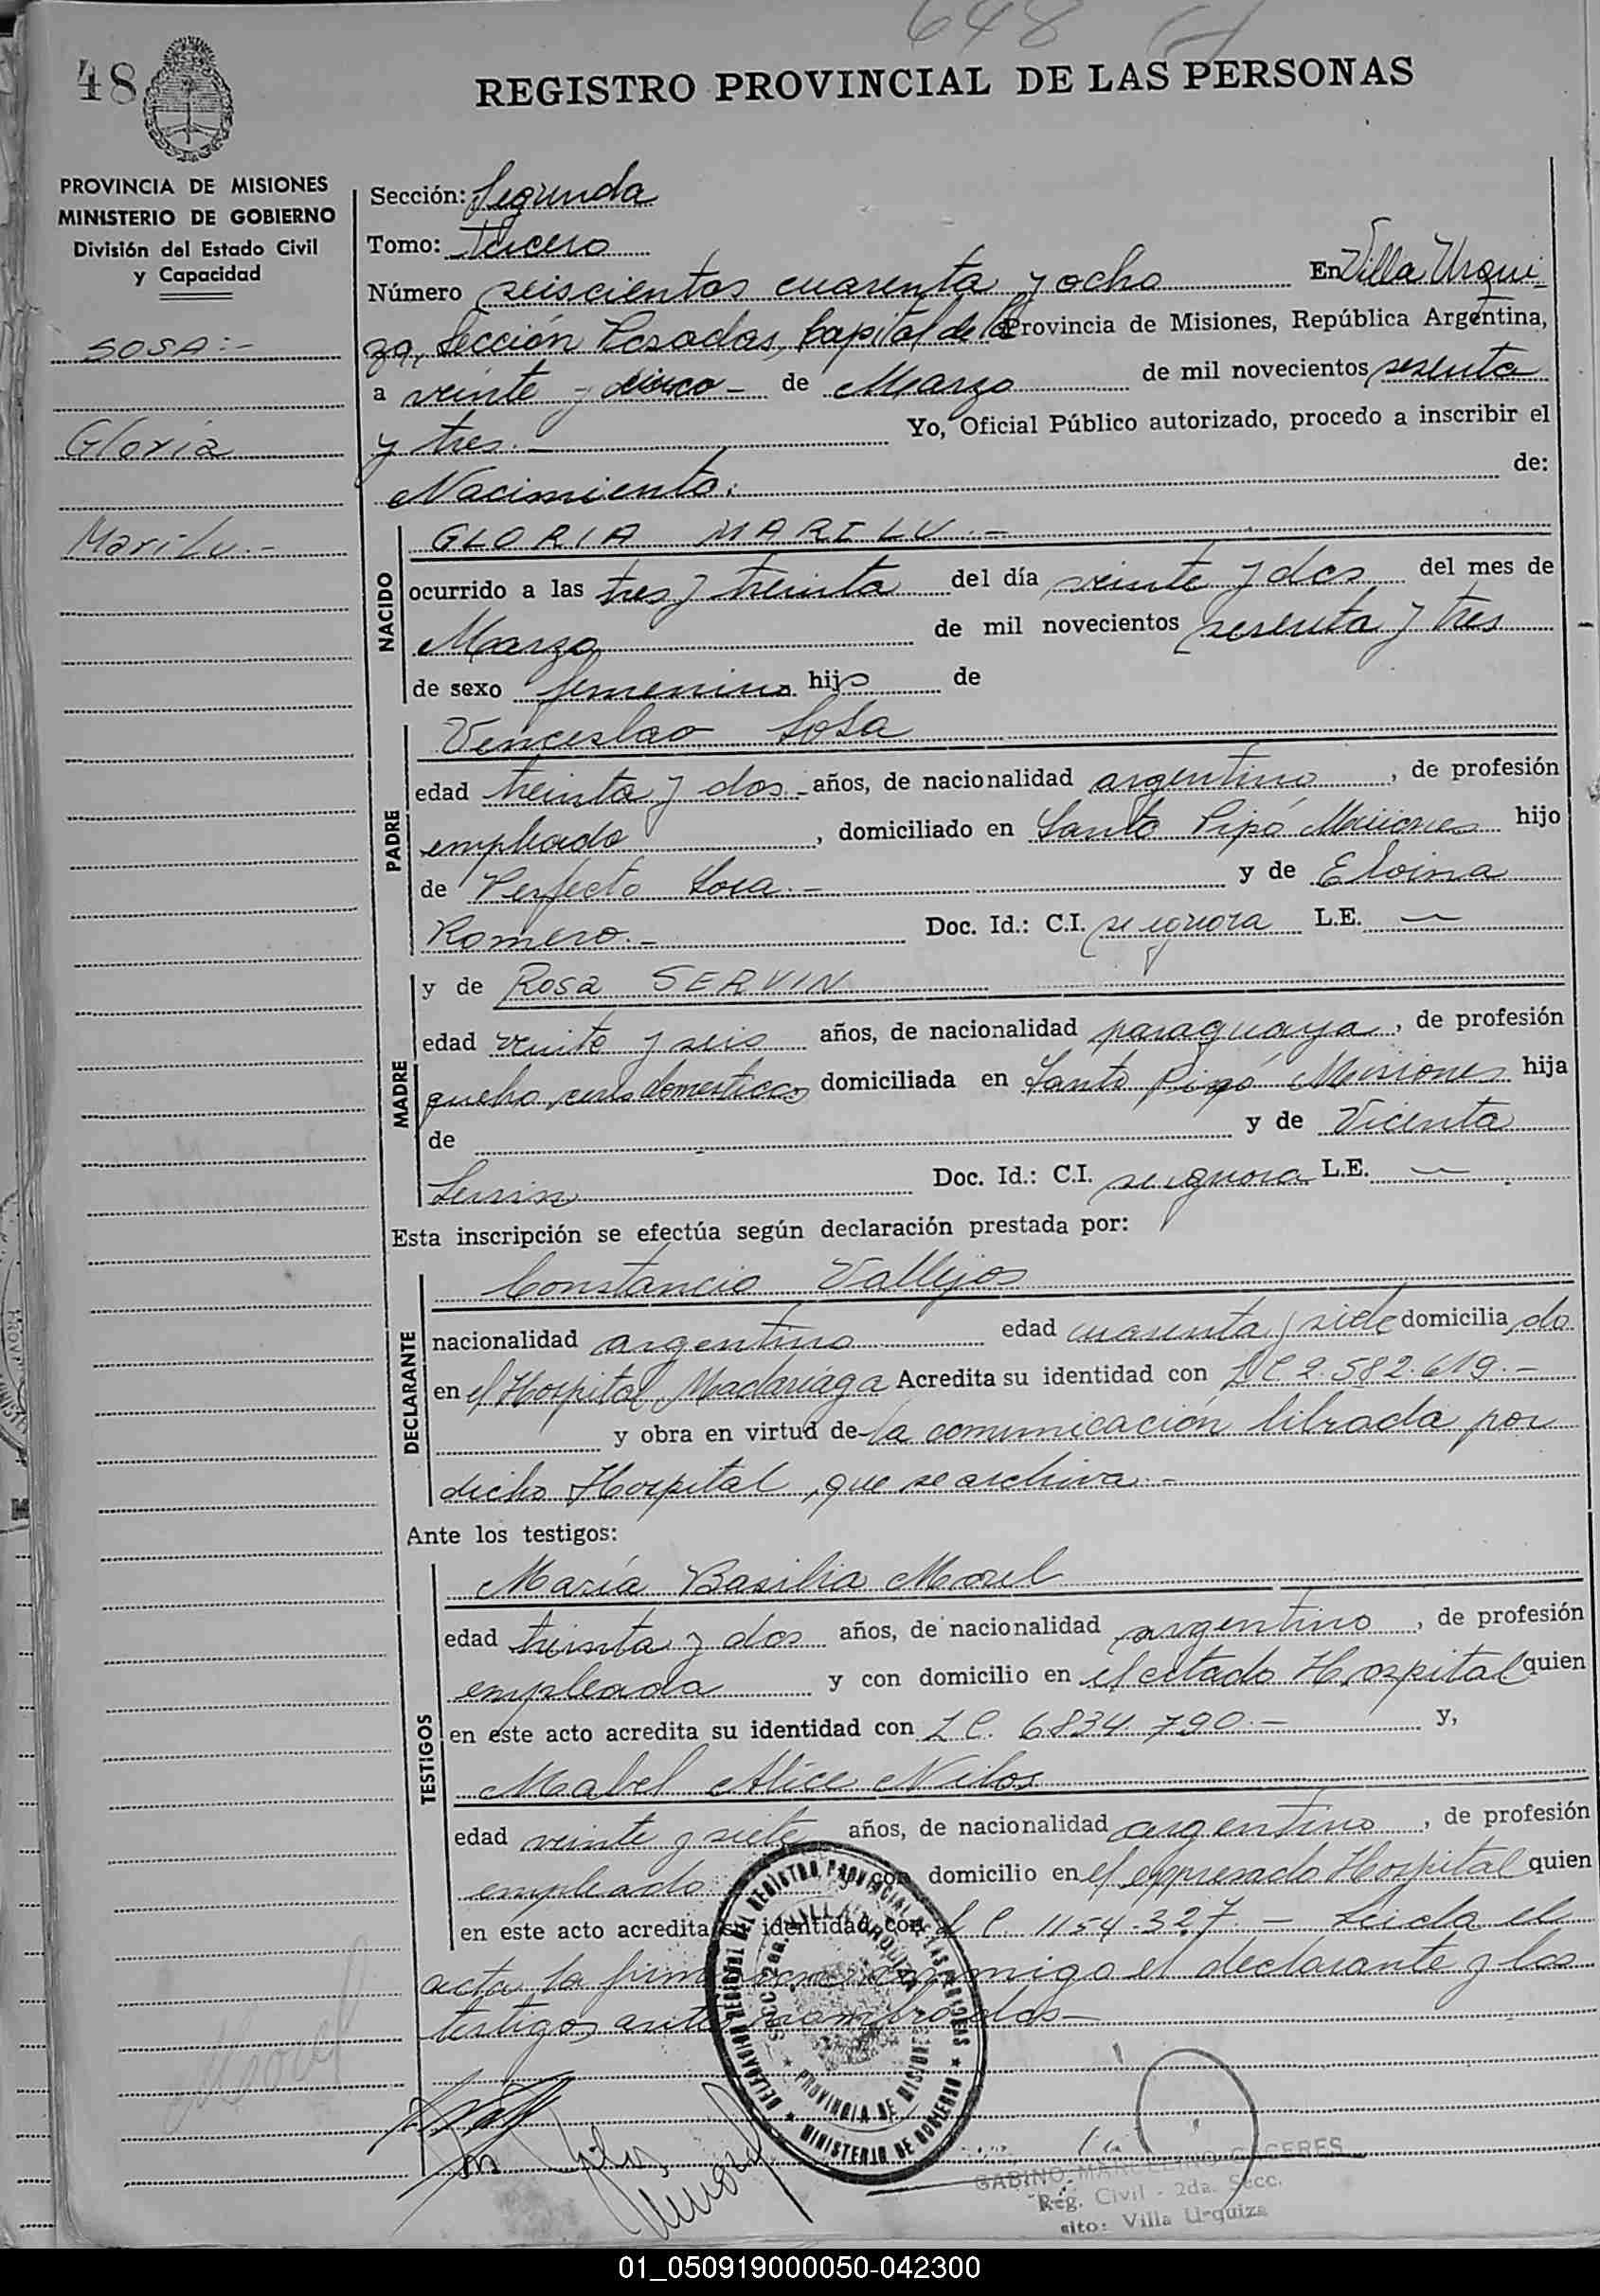 648
48
REGISTRO PROVINCIAL DE LAS PERSONAS
PROVINCIA DE MISIONES
MINISTERIO DE GOBIERNO
División del Estado Civil
y Capacidad
SOSA:-
Gloria
Marilu.-
Sección: Segunda
Tomo: Tercero
Número seiscientos cuarenta y ocho En Villa Urqui-
za, Sección Posadas, Capital de la Provincia de Misiones, República Argentina,
a veinte y cinco- de Marzo de mil novecientos sesenta
y tres.- Yo, Oficial Público autorizado, procedo a inscribir el
Nacimiento. de:
NACIDO
GLORIA MARILU.-
ocurrido a las tres y treinta del día veinte y dos del mes de
Marzo de mil novecientos sesenta y tres
de sexo femenino hijo de
PADRE
Venceslao Sosa
edad treinta y dos- años, de nacionalidad argentino, de profesión
empleado, domiciliado en Santo Pipó Misiones hijo
de Perfecto Sosa.- y de Eloina
Romero.- Doc. Id.: C.I. se ignora L.E. —
MADRE
y de Rosa SERVIN
edad veinte y seis años, de nacionalidad paraguaya, de profesión
domesticos domiciliada en Santo Pipó Misiones hija
de y de Vicenta
Servin Doc. Id.: C.I. se ignora L.E. —
Esta inscripción se efectúa según declaración prestada por:
DECLARANTE
Constancio Vallejos
nacionalidad argentino edad cuarenta y siete domiciliado
en el Hospital Madariaga Acredita su identidad con 2.582.619.-
y obra en virtud de-la comunicación librada por
dicho Hospital, que se archiva.-
Ante los testigos:
TESTIGOS
María Basilia Morel
edad treinta y dos años, de nacionalidad argentino, de profesión
empleada y con domicilio en el citado Hospital quien
en este acto acredita su identidad con L C. 6834.790.- y,
Mabel Alice Nilos
edad veinte y siete años, de nacionalidad argentino, de profesión
empleado y con domicilio en el expresado Hospital quien
en este acto acredita su identidad con L C. 1154.327.- Leida el
acta la firman conmigo el declarante y los
testigos antes nombrados-
DELEGACION REGIONAL DEL REGISTRO PROVINCIAL DE LAS PERSONAS
SECC 2da. VILLA URQUIZA
PROVINCIA DE MISIONES
MINISTERIO DE GOBIERNO
Morel
GABINO MARCELINO CACERES
Reg. Civil - 2da. Secc.
sito: Villa Urquiza
01_050919000050-042300